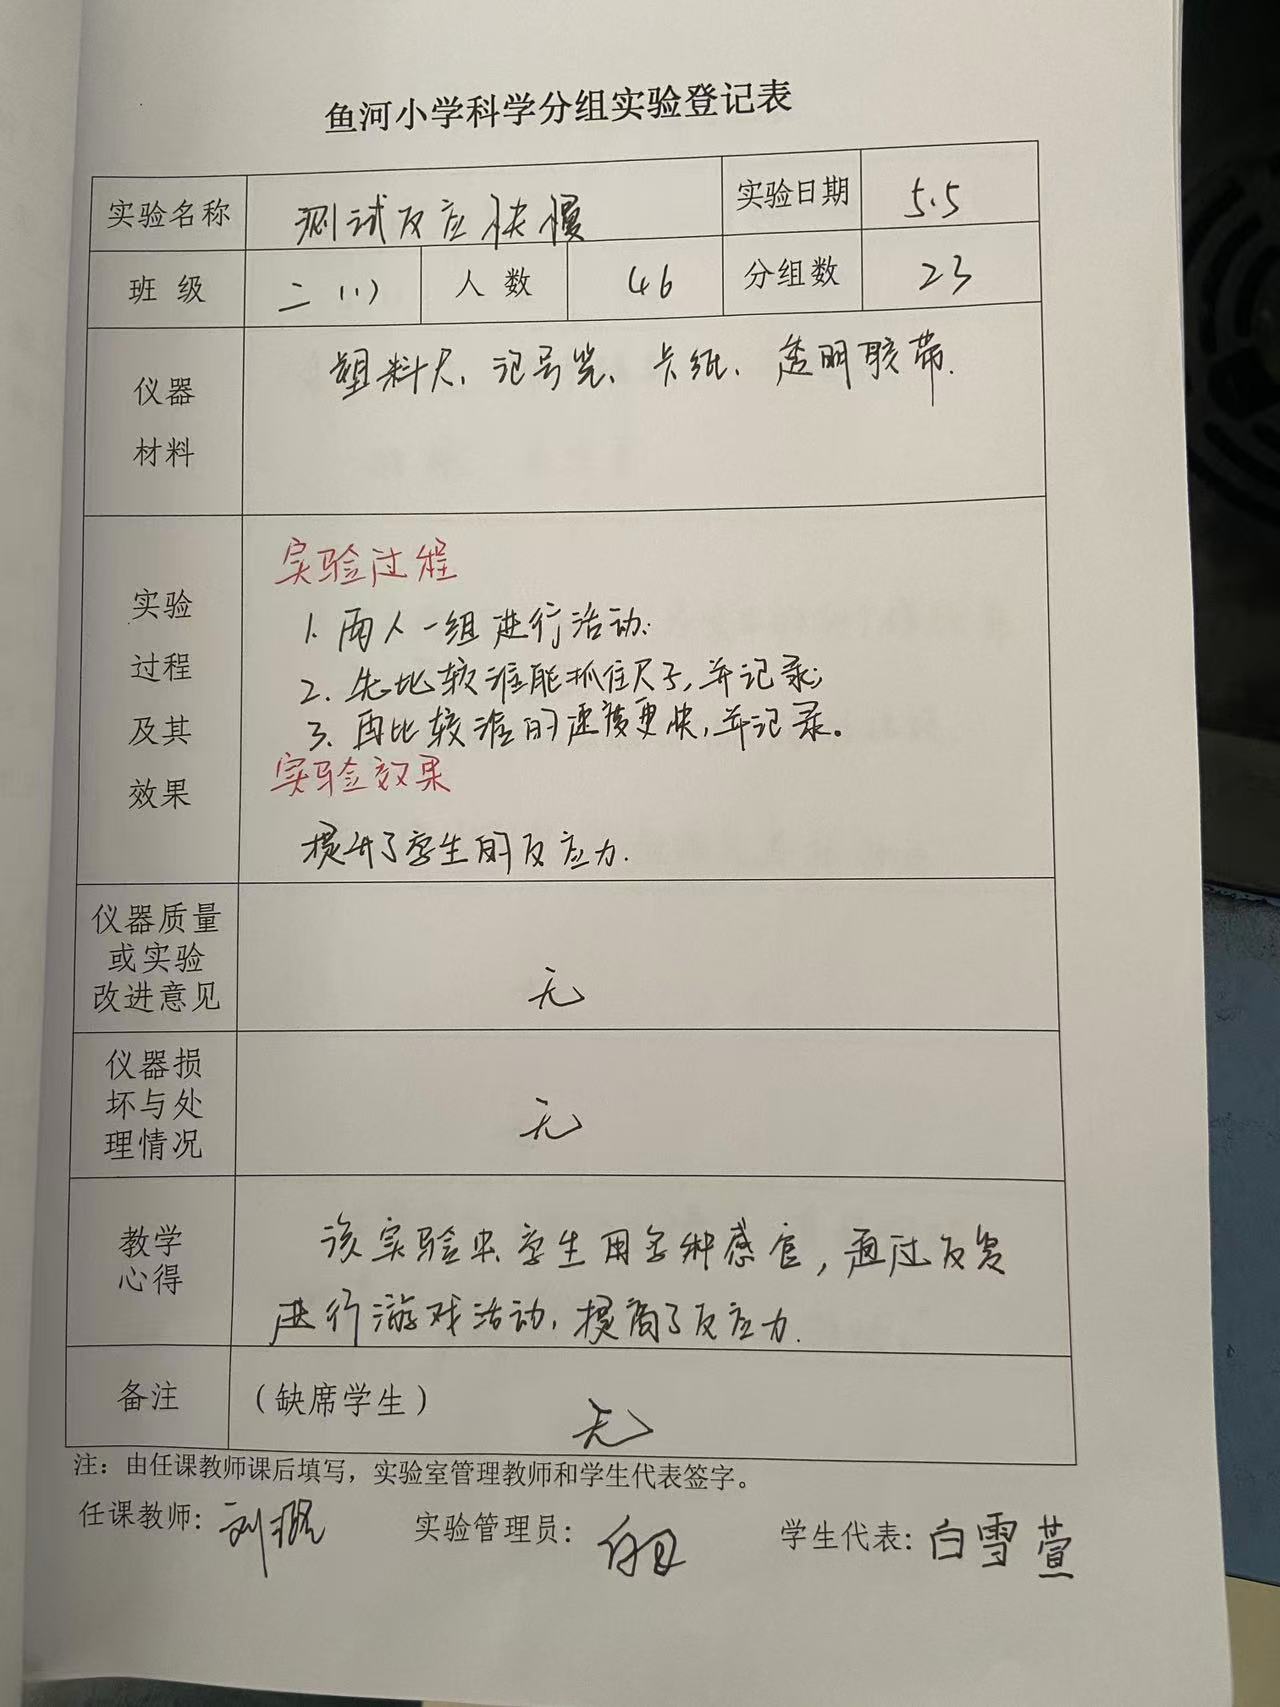 鱼河小学科学分组实验登记表
实验名称 测试反应快慢 实验日期 5.5
班 级 二(1) 人 数 46 分组数 23
仪器
材料
塑料尺、记号笔、卡纸、透明胶带.
实验
过程
及其
效果
实验过程
1. 两人一组进行活动;
2. 先比较谁能抓住尺子,并记录;
3. 再比较谁的速度更快,并记录。
实验效果
提升了学生的反应力.
仪器质量
或实验
改进意见
无
仪器损
坏与处
理情况
无
教学
心得
该实验中学生用多种感官,通过反复
进行游戏活动,提高了反应力.
备注 (缺席学生) 无
注:由任课教师课后填写,实验室管理教师和学生代表签字。
任课教师: 刘 实验管理员: 学生代表: 白雪萱